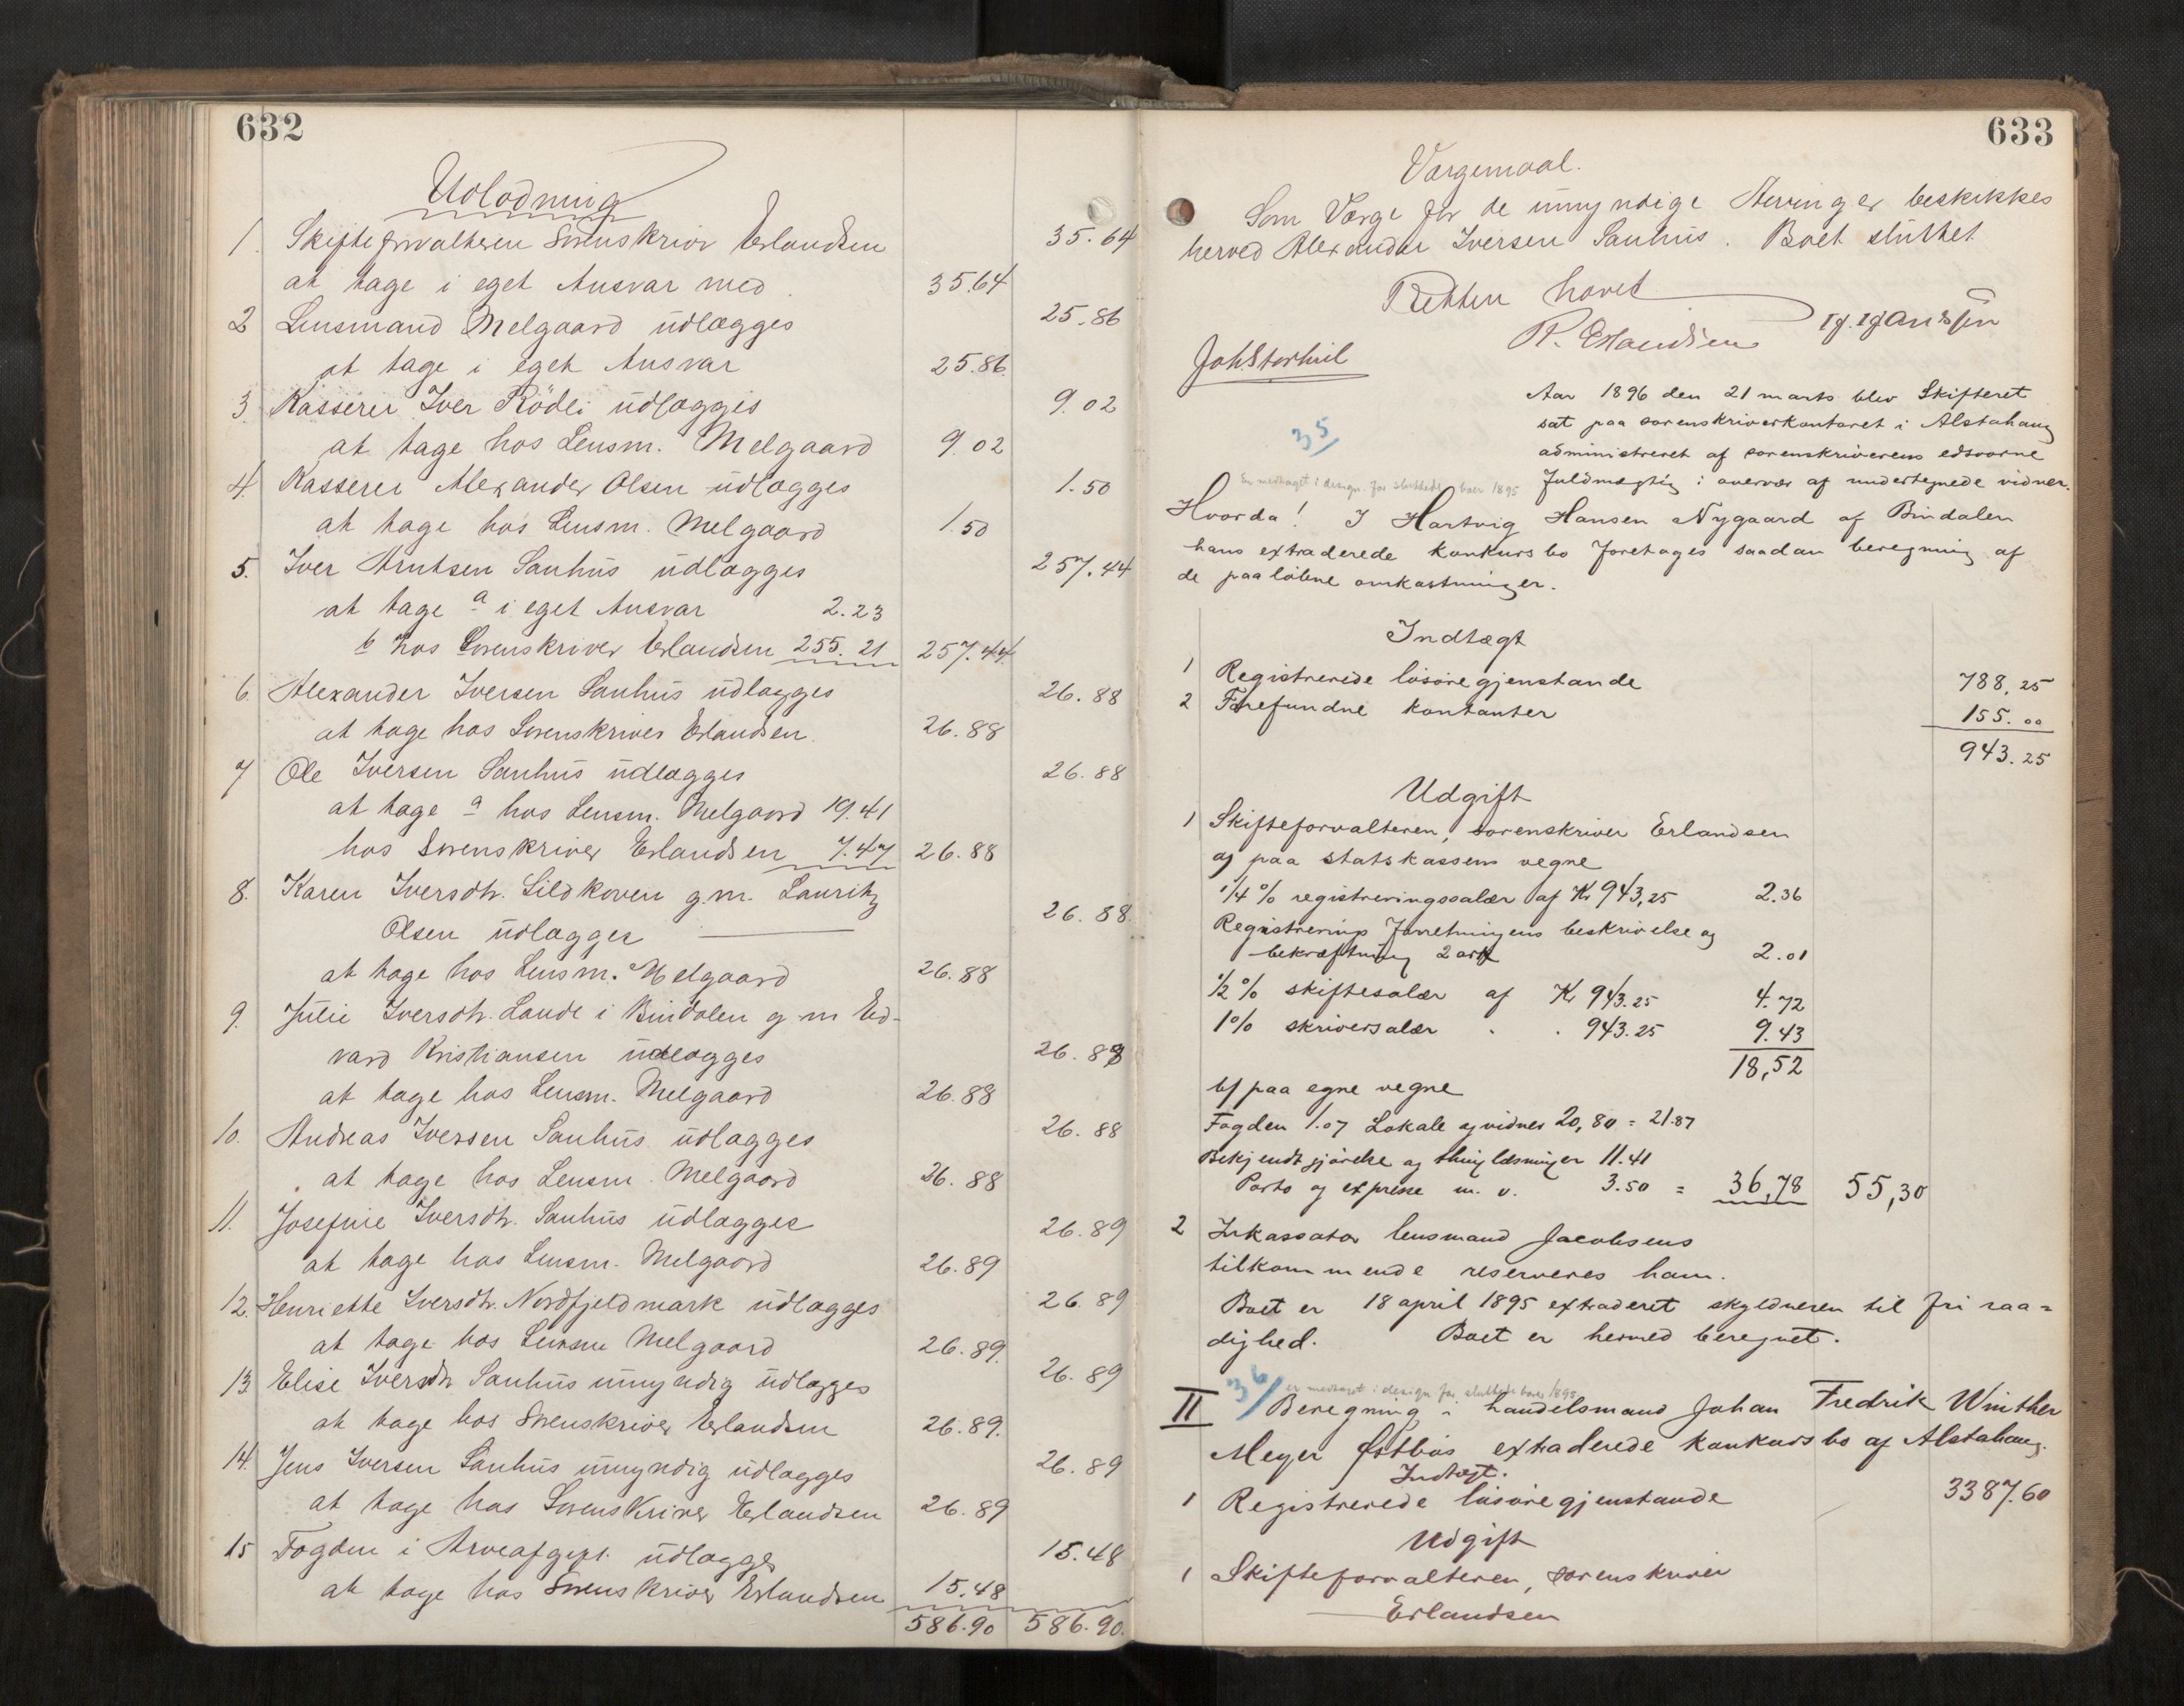 632
Udlodning
1. Skifteforvalteren Sorenskriver Erlandsen 35.64
at tage i eget Ansvar med 35.64
2 Lensmand Melgaard udlægges 25.86
at tage i eget Ansvar 25.86
3. Kasserer Iver Rödli udlægges 9.02
at tage hos Lensm. Melgaard 9.02
4. Kasserer Alexander Olsen udlægges 1.50
at tage hos Lensm. Melgaard 1.50
5. Iver Arntsen Sanhus udlægges 257.44
at tage a i eget Ansvar 2.23
b hos Sorenskriver Erlandsen 255.21 257.44
6. Alexander Iversen Sanhus udlægges 26.88
at tage hos Sorenskriver Erlandsen 26.88
7 Ole Iversen Sanhus udlægges 26.88
at tage a hos Lensm. Melgaard 19.41
hos Sorenskriver Erlandsen 7.47 26.88
8. Karen Iversdtr. Sildkoven g.m. Lauritz
Olsen udlægges 26.88
at tage hos Lensm. Melgaard 26.88
9. Julie Iversdtr. Lande i Bindalen g m Ed-
vard Kristiansen udlægges 26.88
at tage hos Lensm. Melgaard 26.88
10. Andreas Iversen Sanhus udlægges 26.88
at tage hos Lensm. Melgaard 26.88
11. Josefine Iversdtr. Sanhus udlægges 26.89
at tage hos Lensm. Melgaard 26.89
12. Henriette Iversdtr. Nordfjeldmark udlægges 26.89
at tage hos Lensm Melgaard 26.89.
13. Elise Iversdtr Sanhus umyndig udlægges 26.89
at tage hos Sorenskriver Erlandsen 26.89.
14. Jens Iversen Sanhus umyndig udlægges 26.89
at tage hos Sorenskriver Erlandsen 26.89
15 Fogden i Arveafgift udlægges 15.48
at tage hos Sorenskriver Erlandsen 15.48
586.90 586.90.
633
Værgemaal.
Som Værge for de umyndige Arvinger beskikkes
herved Alexander Iversen Sanhus. Boet sluttet
Retten hævet
R. Erlandsen
Joh Storhiil
Aar 1896 den 21 marts blev Skifteret
sat paa sorenskriverkontoret i Alstahaug
administreret af sorenskriverens edsvorne
fuldmægtig i overvær af undertegnede vidner.
35
Er medtaget i design. for sluttede boer 1895
Hvorda! I Hartvig Hansen Nygaard af Bindalen
hans extraderede konkursbo foretages saadan beregning af
de paaløbne omkostninger.
Indtægt
1 Registrerede løsøregjenstande 788,25
2 Forefundne kontanter 155.00
943.25
Udgift
1 Skifteforvalteren, sorenskriver Erlandsen
a) paa statskassens vegne
1/4 % registreringssalær af Kr 943,25 2.36
Registrerings forretningens beskrivelse og
bekræftning 2 ark 2.01
1/2 % skiftesalær af Kr 943.25 4.72
1 % skriversalær . . 943.25 9.43
18,52
b) paa egne vegne
Fogden 1.07 Lokale og vidner 20,80 = 21.87
Bekjendtgjørelse og thinglæsninger 11.41
Porto og expresse m. v. 3.50 = 36,78 55,30
2 Inkassator lensmand Jacobsens
tilkommende reserveres ham.
Boet er 18 april 1895 extraderet skyldneren til fri raa=
dighed. Boet er hermed beregnet.
36
er medtaget i design for sluttede boer 1895
II Beregning i handelsmand Johan Fredrik Winther
Meyer Østbøs extraderede konkursbo af Alstahaug.
Indtægt.
1 Registrerede løsøregjenstande 3387.60
Udgift
1 Skifteforvalteren, sorenskriver
Erlandsen